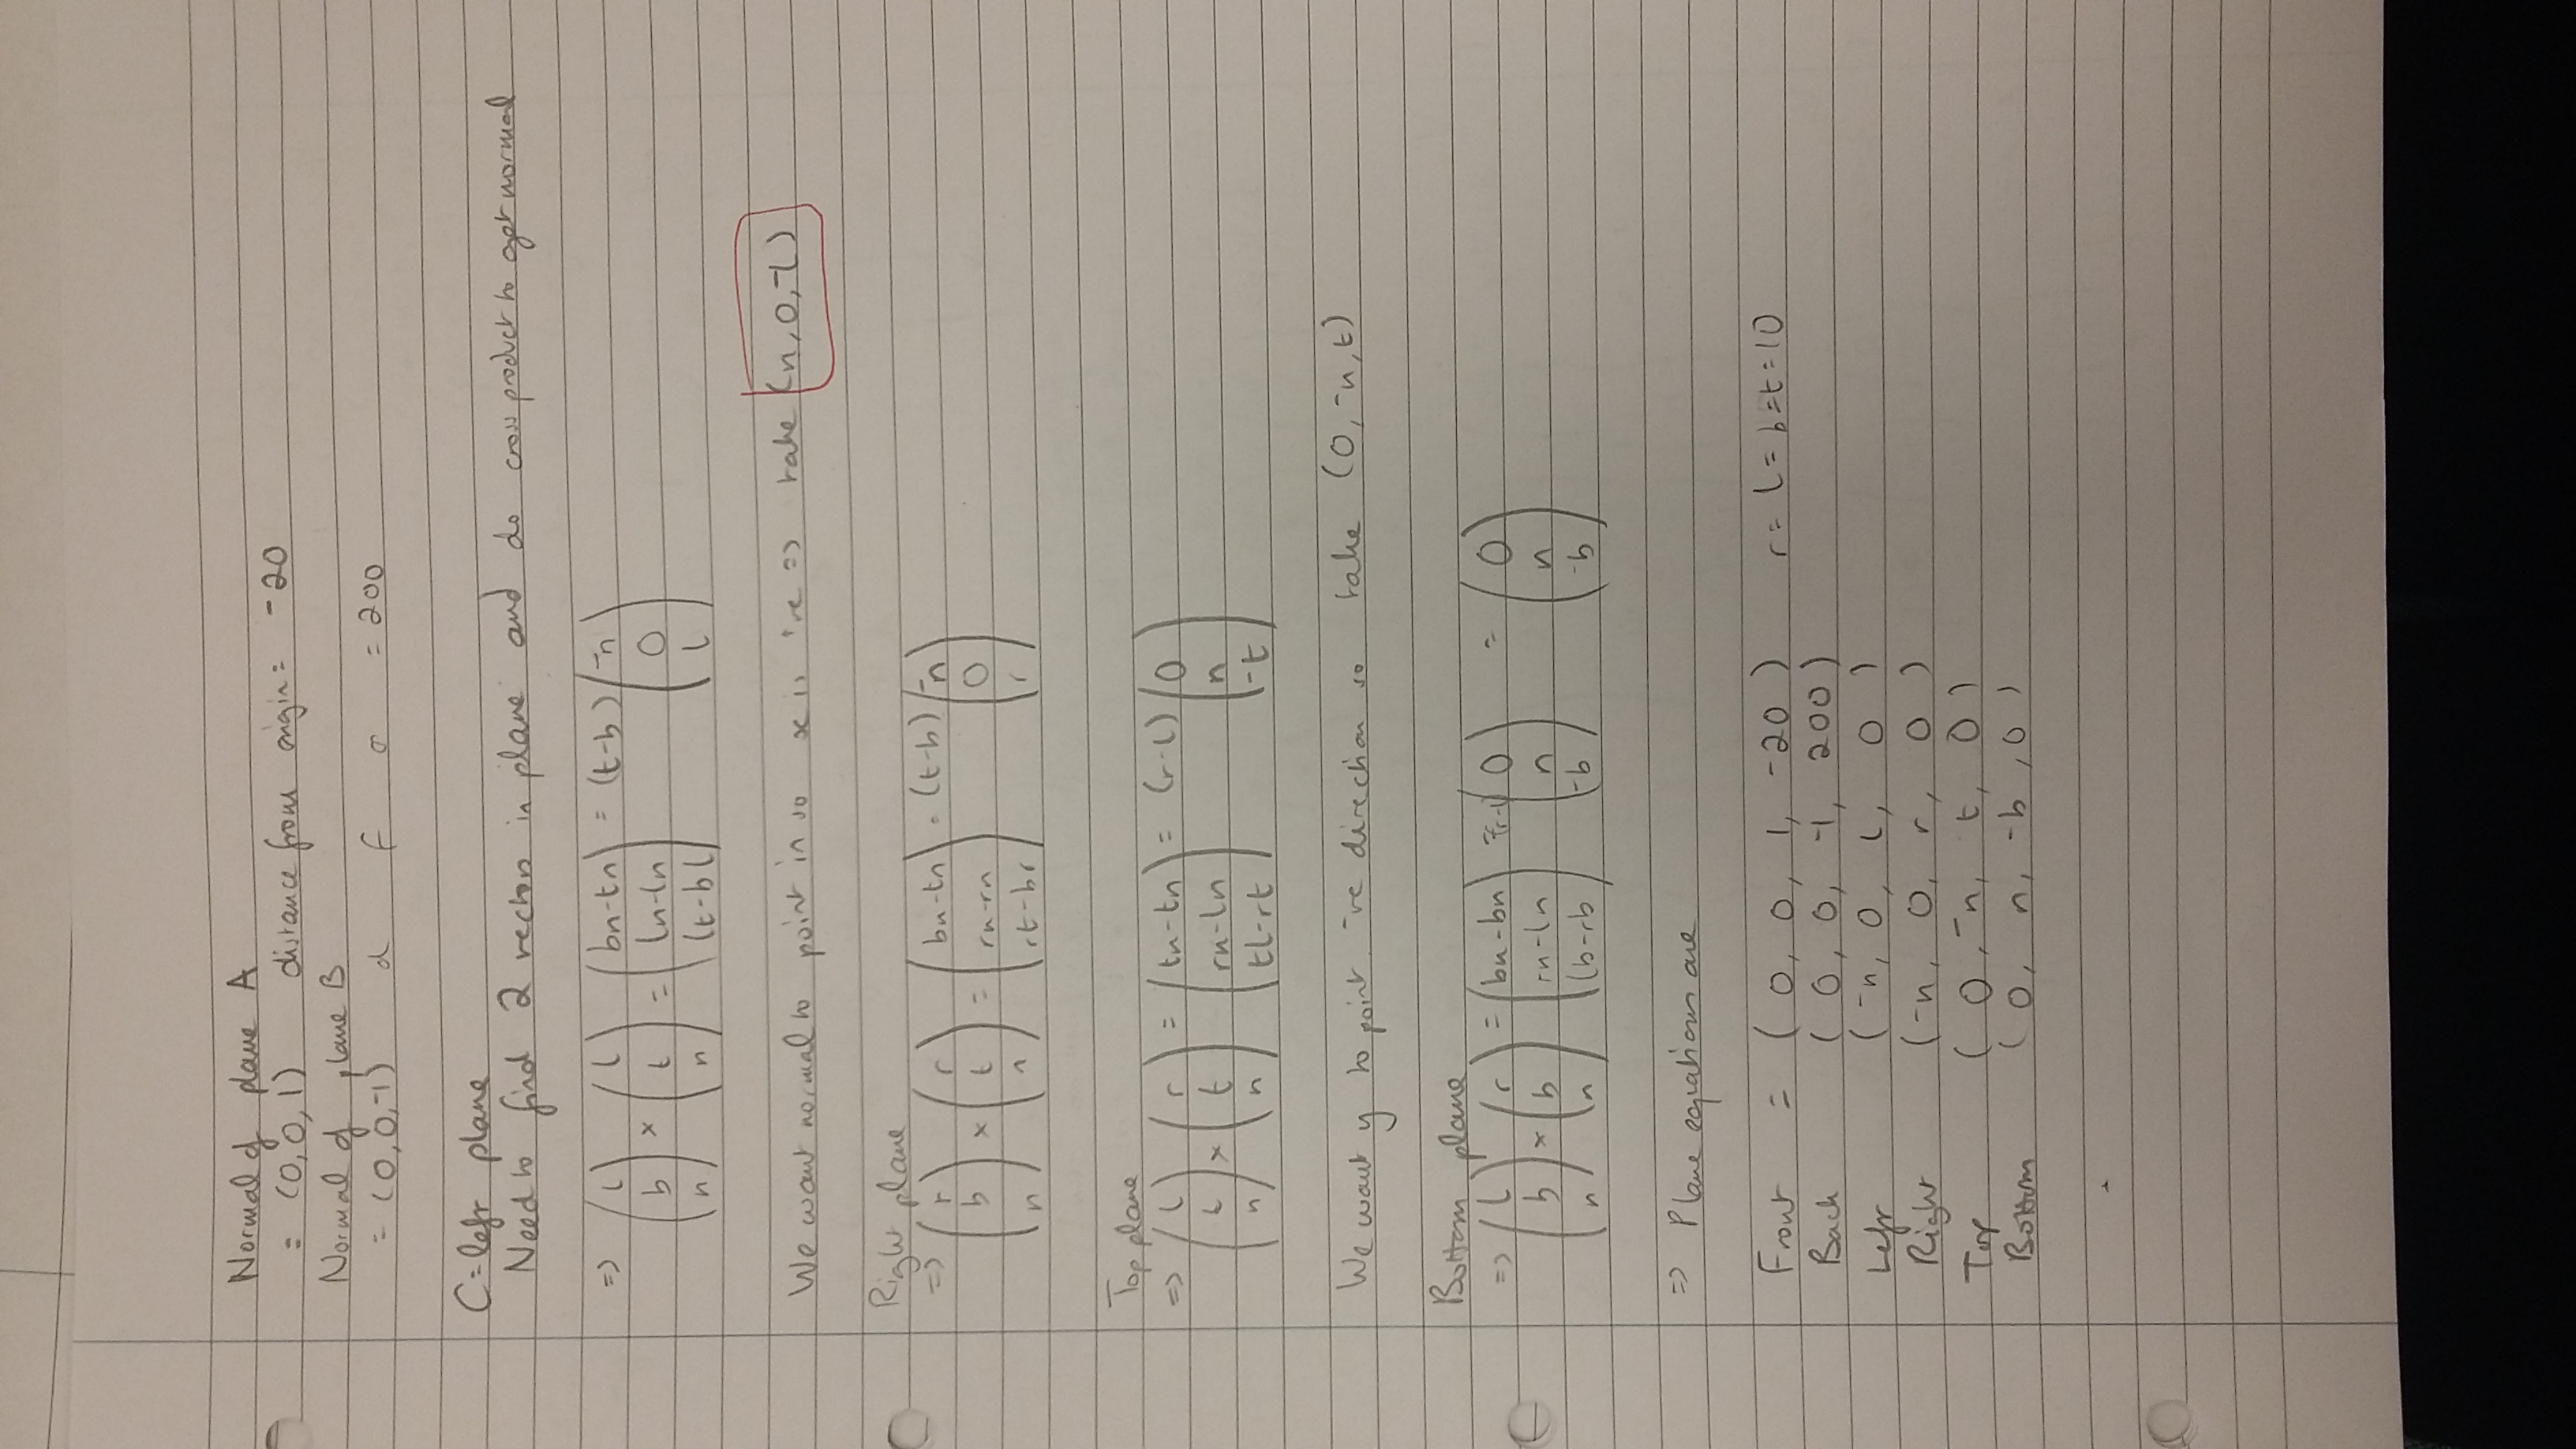 Normal of plane A
= (0,0,1) distance from origin = -20
Normal of plane B
= (0,0,-1) d F o = 200
C = left plane
Need to find 2 vectors in plane and do cross product to get normal
=> (l b n) × (l t n) = (bn-tn ln-ln lt-bl) = (t-b) (-n 0 l)
We want normal to point in so x is +ve => take (n,0,-l)
Right plane
=> (r b n) × (r t n) = (bn-tn rn-rn rt-br) = (t-b) (-n 0 r)
Top plane
=> (l t n) × (r t n) = (tn-tn rn-ln tl-rt) = (r-l) (0 n -t)
We want y to point -ve direction so take (0,-n,t)
Bottom plane
=> (l b n) × (r b n) = (bn-bn rn-ln lb-rb) = (0 n -b) = (0 n -b)
=> Plane equations are
Front = (0, 0, 1, -20) r = l = b = t = 10
Back (0, 0, -1, 200)
Left (-n, 0, l, 0)
Right (-n, 0, r, 0)
Top (0, -n, t, 0)
Bottom (0, n, -b, 0)